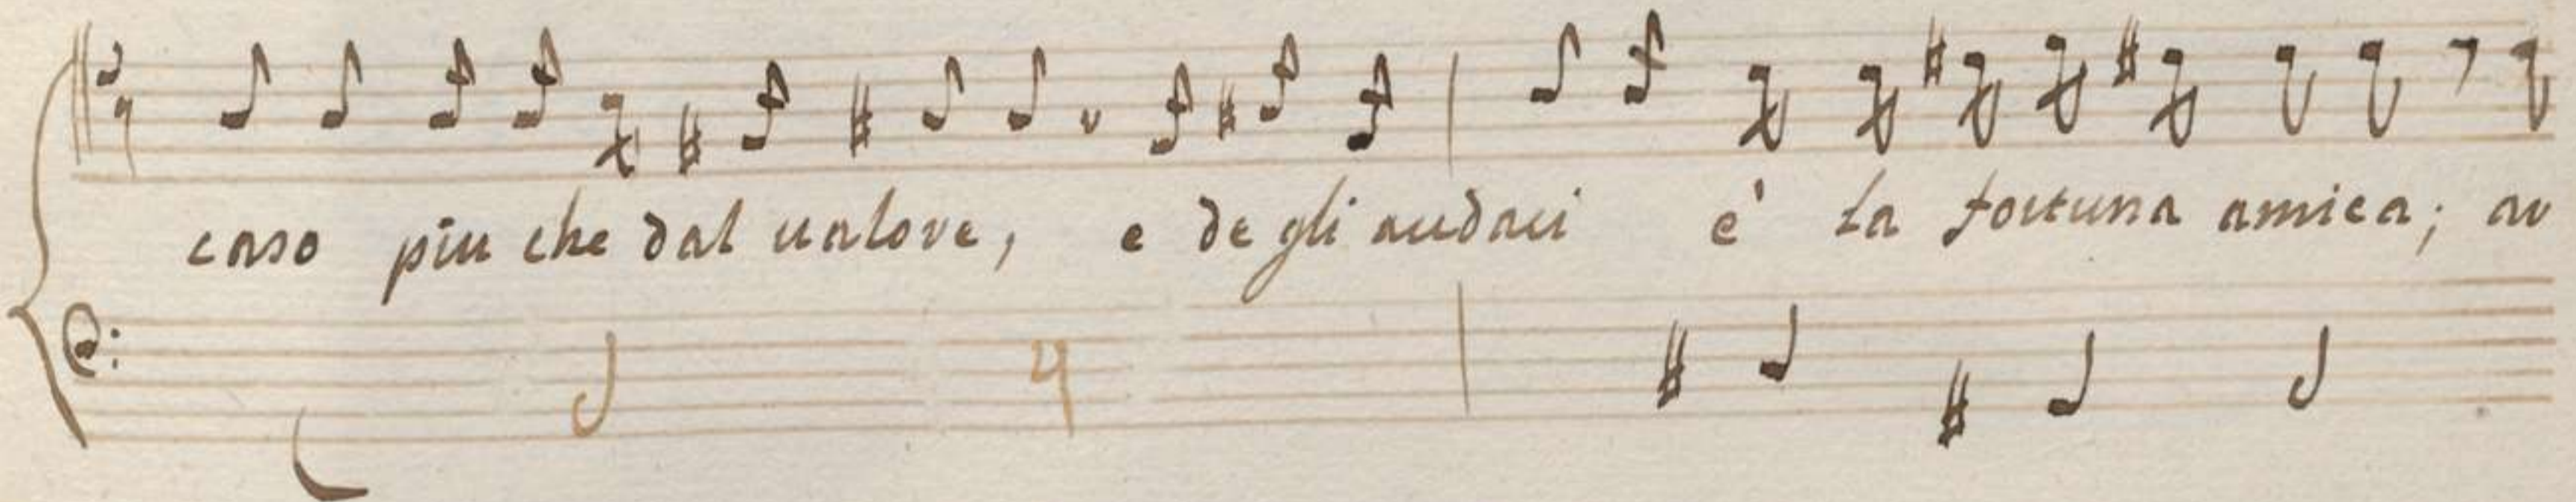 caso piu che dal ualore, e de gli audaci e' la fortuna amica; au